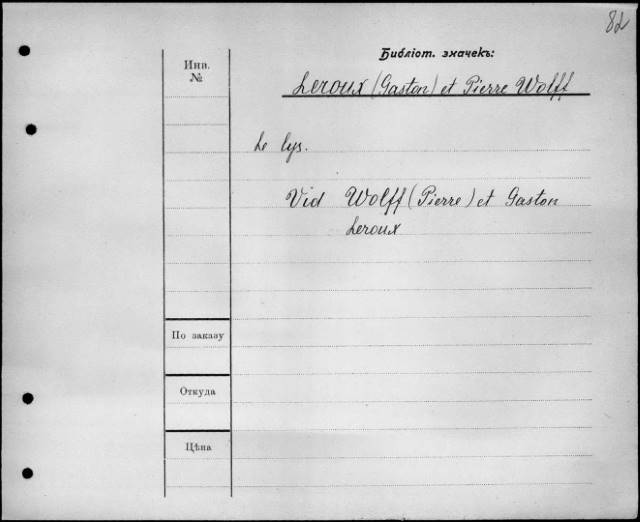 82
Библіот. значекъ:
Инв.
№
Leroux (Gaston) et Pierre Wolff
Le lys.
Vid Wolff (Pierre) et Gaston
Leroux
По заказу
Откуда
Цѣна